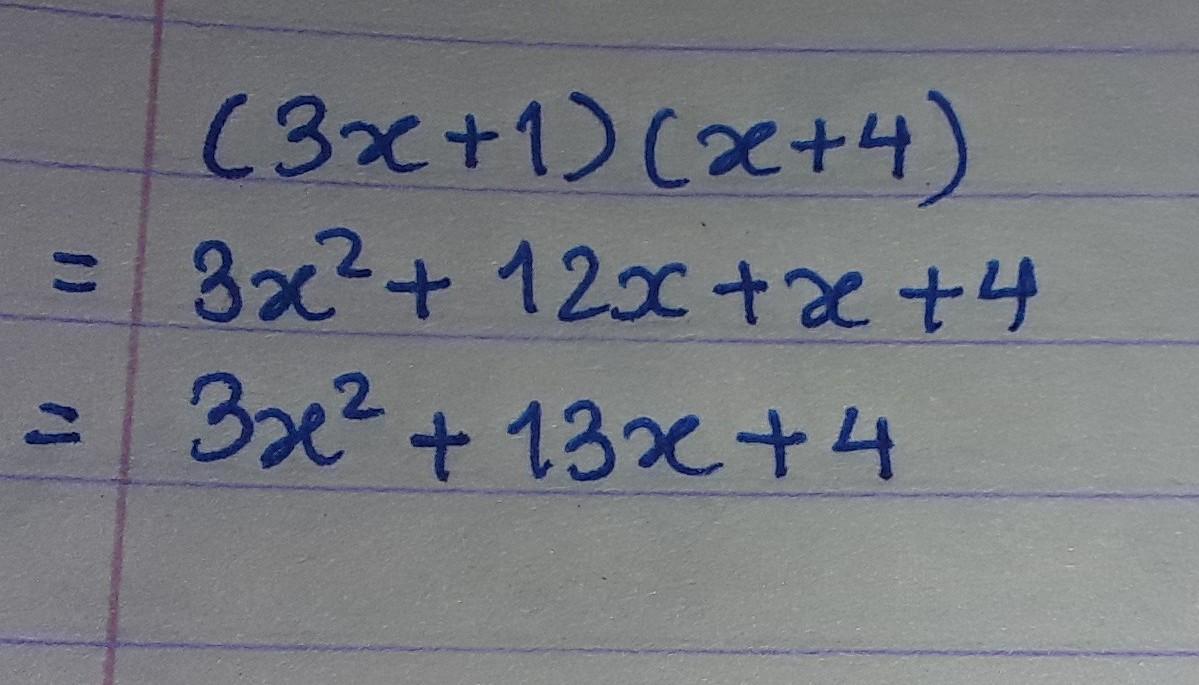 (3x+1)(x+4)
= 3x²+ 12x+x+4
= 3x² + 13x+4